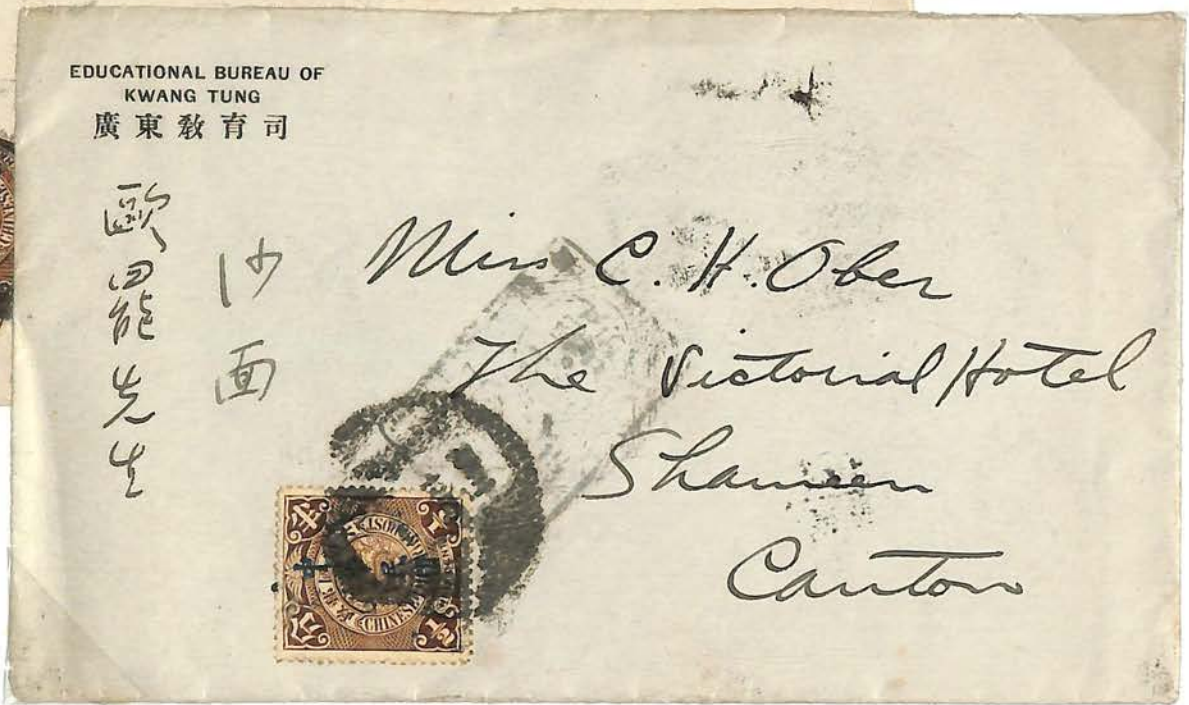 EDUCATIONAL BUREAU OF
KWANG TUNG
廣東教育司
沙面
歐羅先生
Miss C. H. Ober
The Victorial Hotel
Shameen
Canton
CHINESE